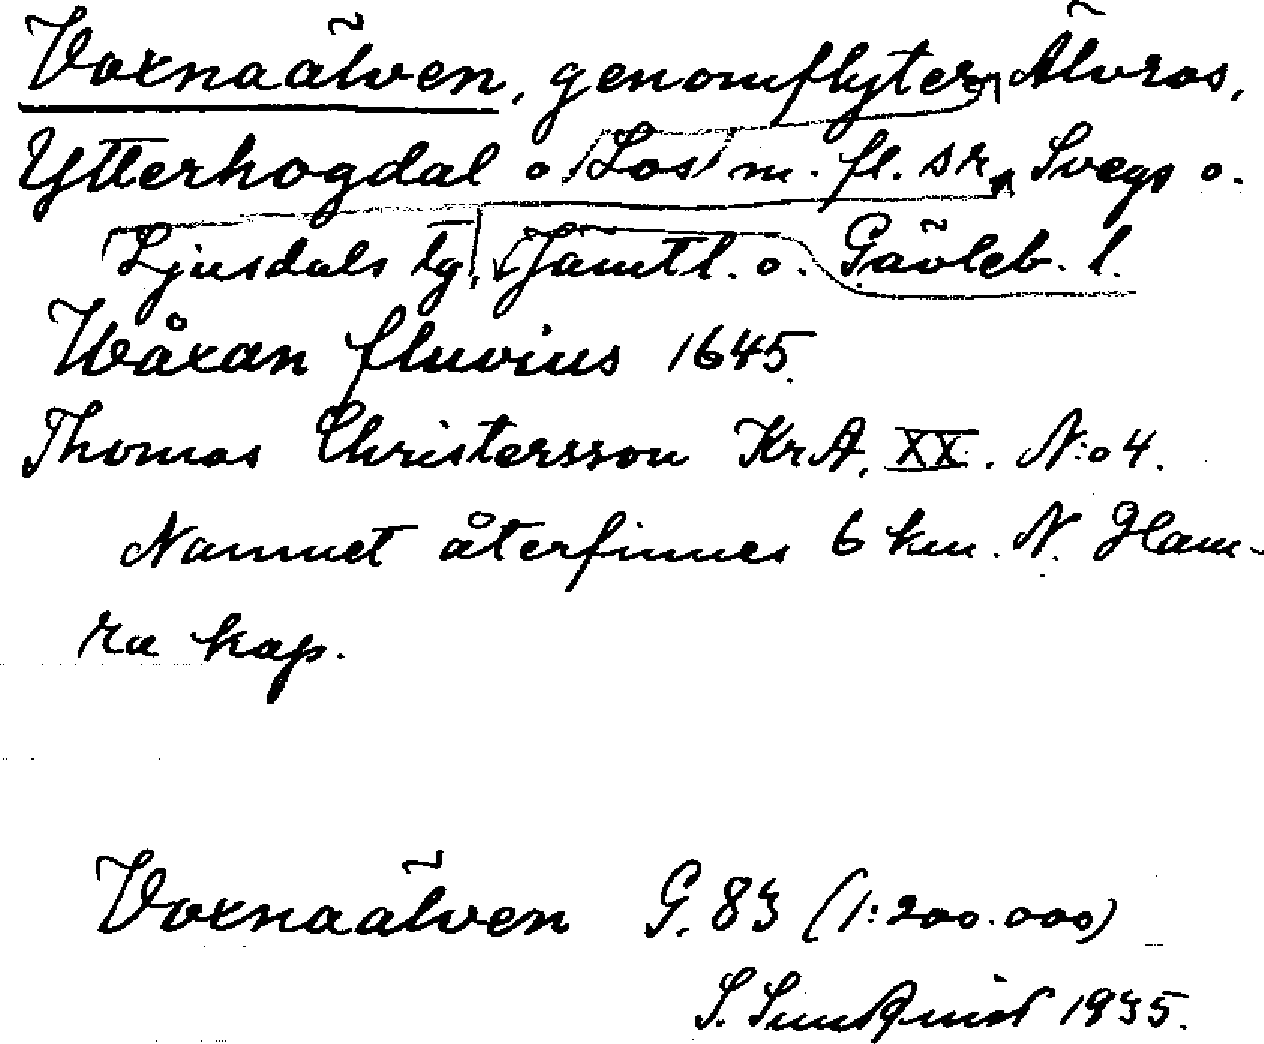 Voxnaälven, genomflyter Älvros,
Ytterhogdal o. Los m. fl. sn, Svegs o.
Ljusdals tg, Jämtl. o. Gävleb. l.
Wåxan fluvius 1645.
Thomas Christersson KrA, XX. N:o 4.
Namnet återfinnes 6 km. N. Ham-
ra kap.
Voxnaälven G. 83 (1:200.000)
S. Sundquist 1935.